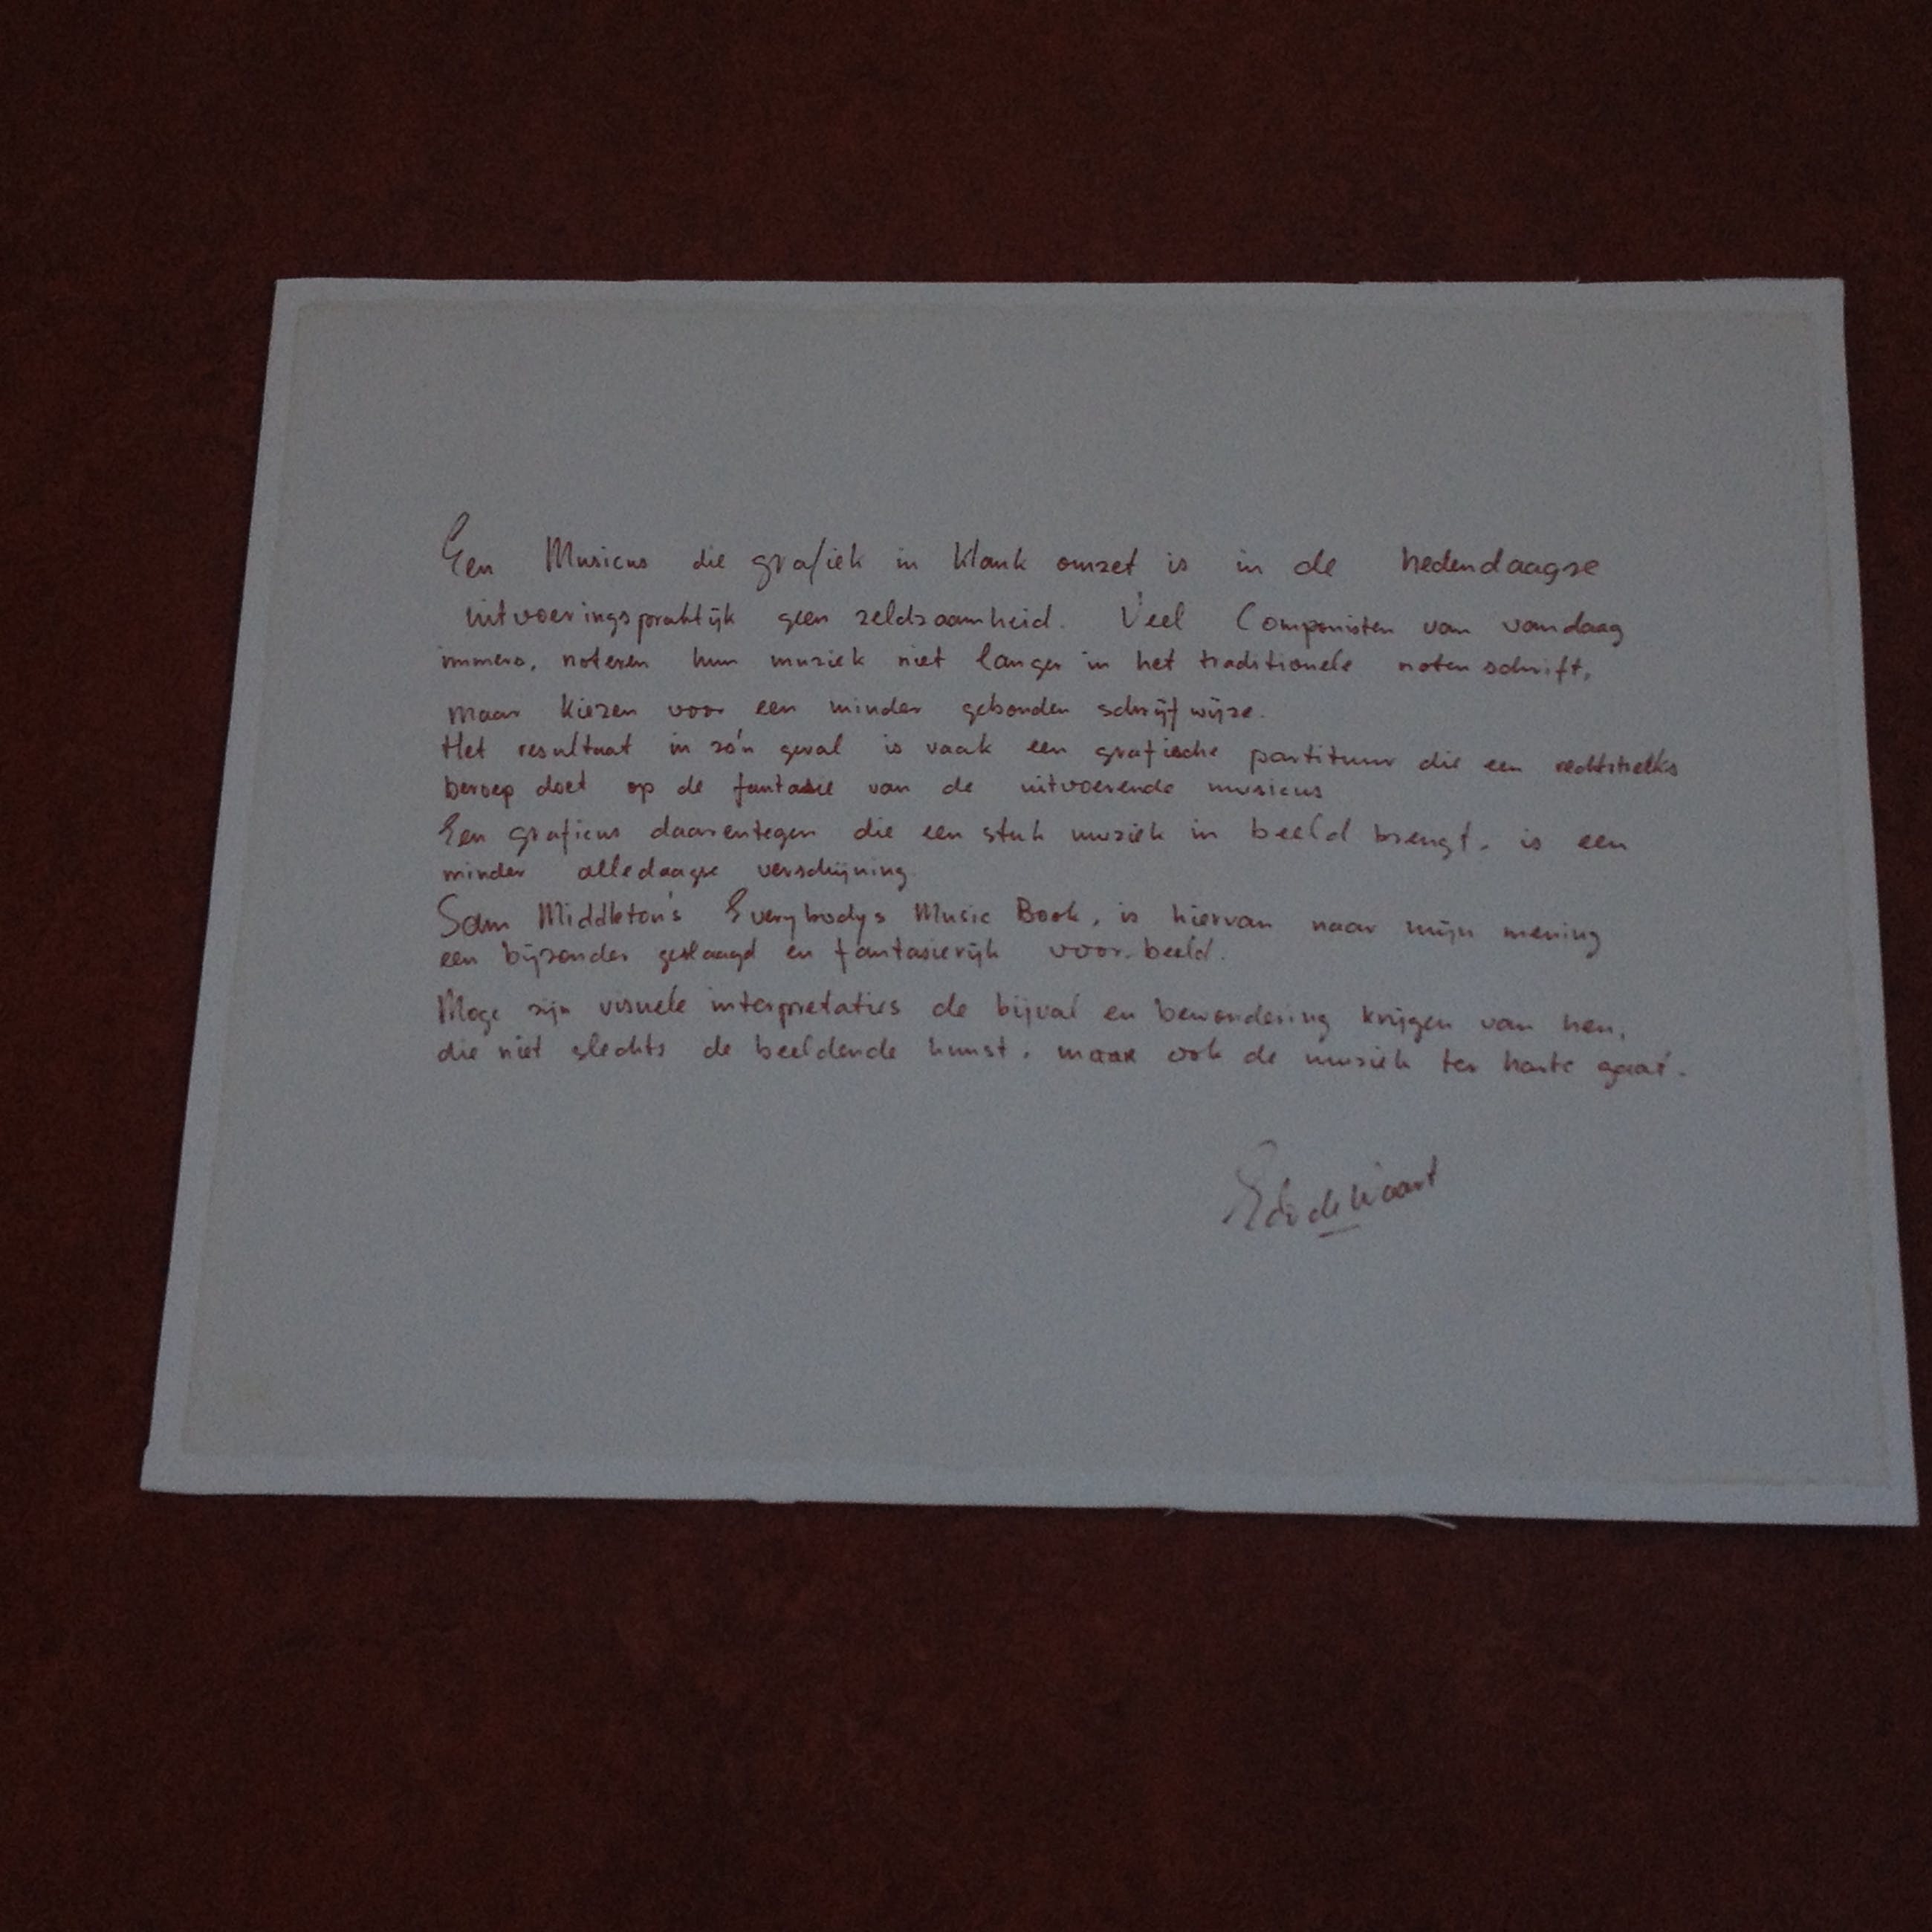 Een Musicus die grafiek in klank omzet is in de hedendaagse
uitvoeringspraktijk geen zeldzaamheid. Veel Componisten van vandaag
immers, noteren hun muziek niet langer in het traditionele notenschrift,
maar kiezen voor een minder gebonden schrijfwijze.
Het resultaat in zo'n geval is vaak een grafische partituur die een rechtstreeks
beroep doet op de fantasie van de uitvoerende musicus
Een graficus daarentegen die een stuk muziek in beeld brengt, is een
minder alledaagse verschijning.
Sam Middleton's Everybodys Music Book, is hiervan naar mijn mening
een bijzonder geslaagd en fantasierijk voorbeeld.
Moge zijn visuele interpretaties de bijval en bewondering krijgen van hen,
die niet slechts de beeldende kunst, maar ook de muziek ter harte gaat.
Edo de Waart